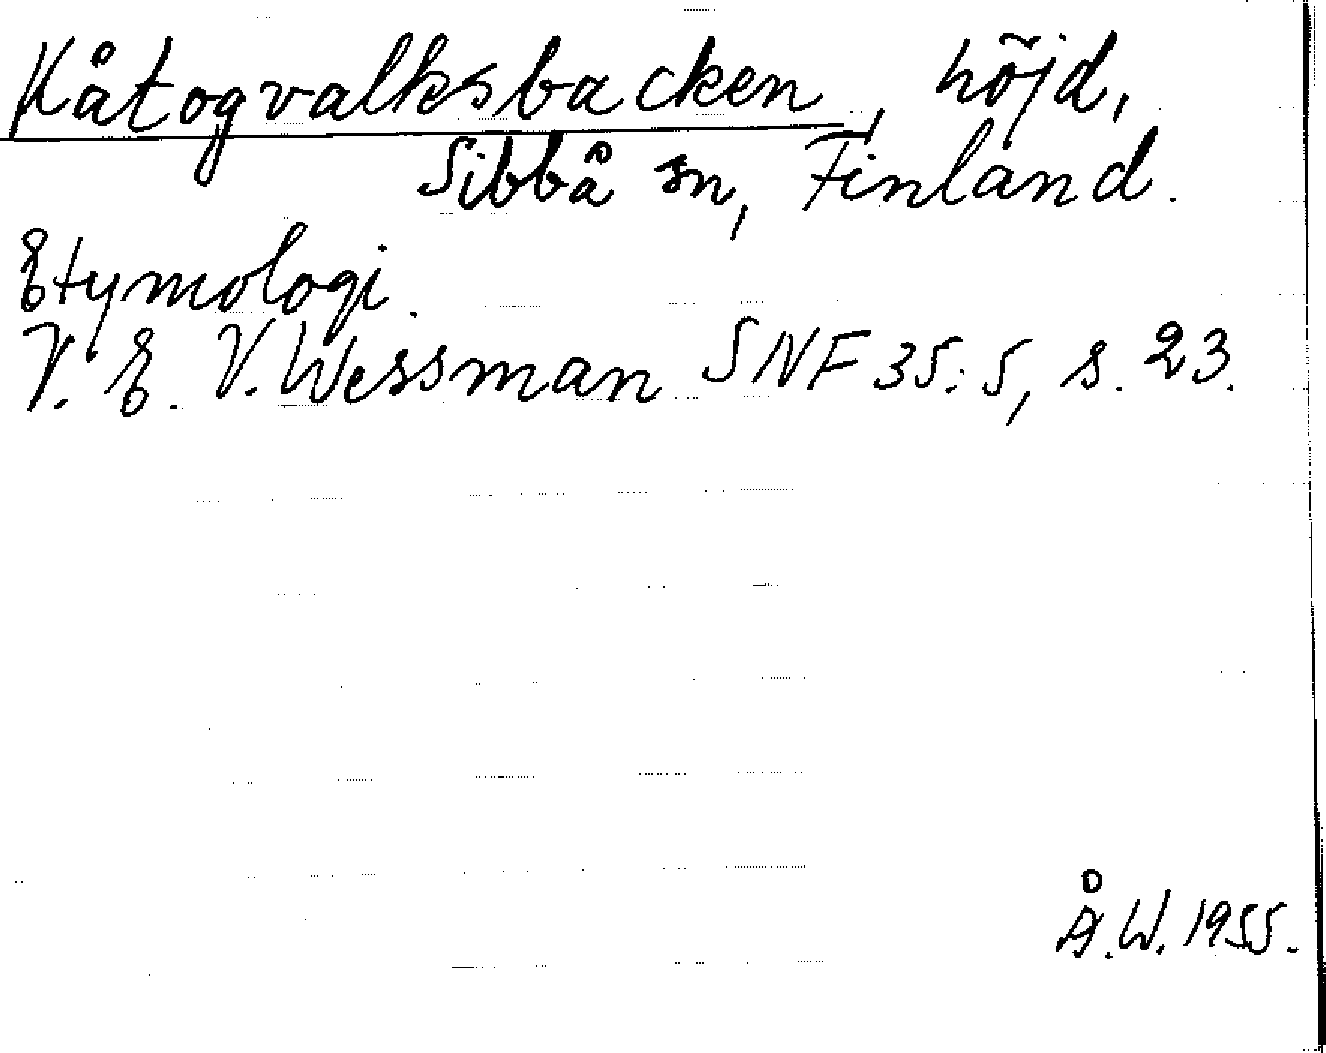 Kåtogvalksbacken, höjd,
Sibbå sn, Finland.
Etymologi.
V. E. V. Wessman SNF 35:5, s. 23.
Å.W. 1955.